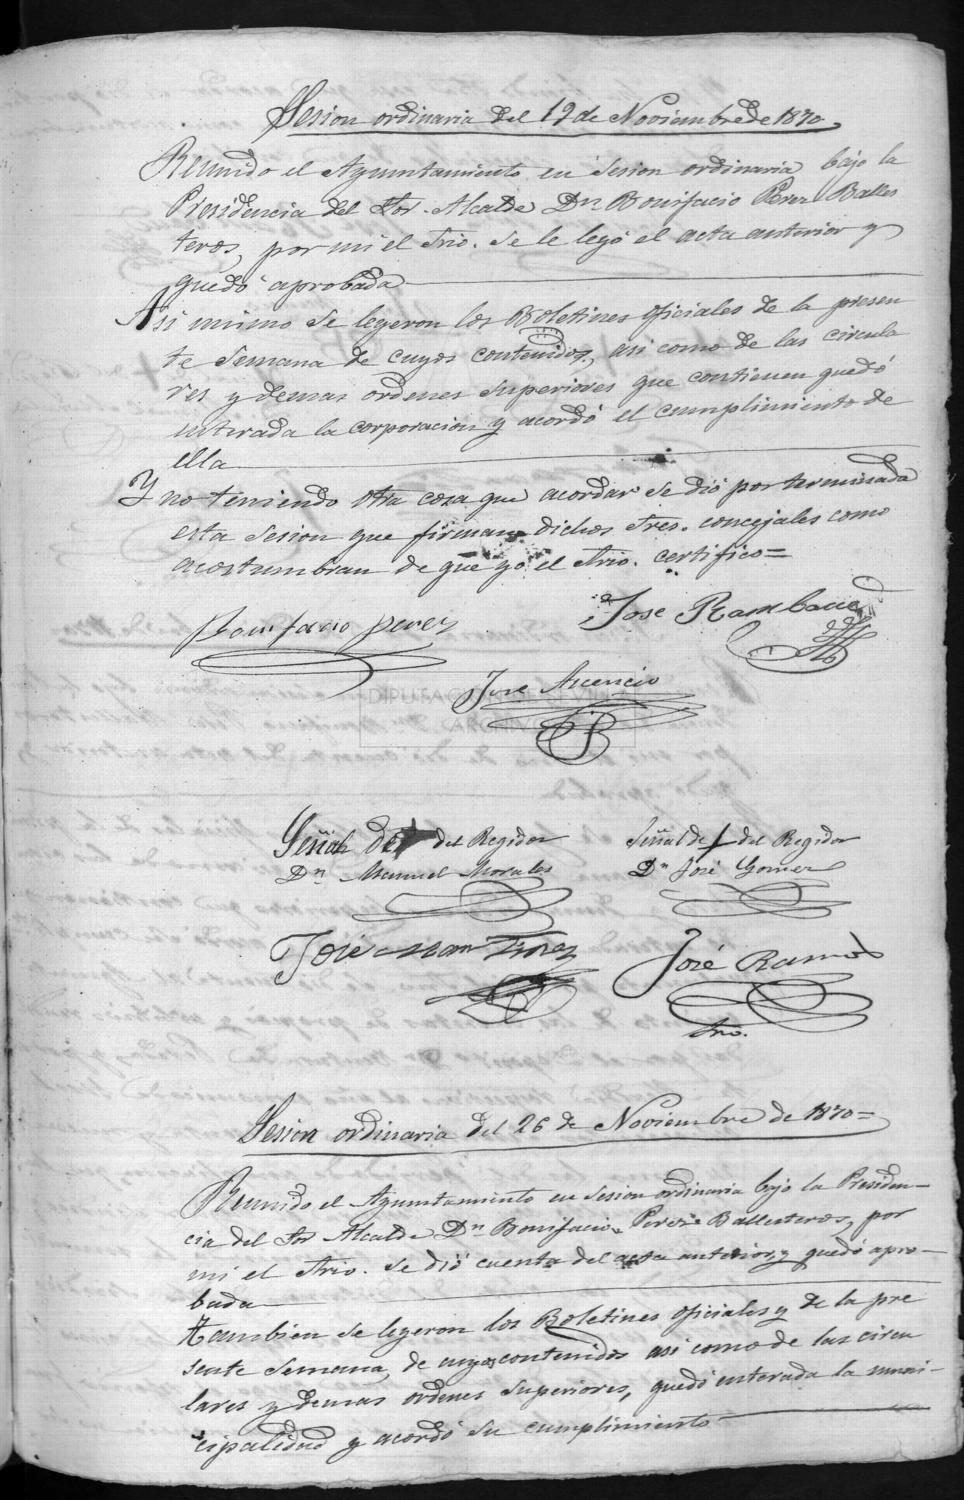 Sesion ordinaria del 19 de Noviembre de 1870.
Reunido el Ayuntamiento en Sesion ordinaria bajo la
Presidencia del Sor. Alcalde Dn Bonifacio Perez Balles
teros, por mi el Srio. se le leyó el acta anterior y
quedó aprobada
Asi mismo se leyeron los Boletines oficiales de la presen
te Semana de cuyos contenidos, asi como de las circula
res y demas ordenes superiores que contienen quedó
interada la corporacion y acordó el cumplimiento de
ella
Y no teniendo otra cosa que acordar se dió por terminada
esta sesion que firman dichos Sres. concejales como
acostumbran de que yo el Srio. certifico=
Bonifacio Perez
Jose Rambaue
Jose Ascencio
DIPUTACION DE SEVILLA
ARCHIVO
Señal de del Regidor
Dn Manuel Morales
Señal de del Regidor
Dn José Gomez
José Man Florez
José Ramos
Srio.
Sesion ordinaria del 26 de Noviembre de 1870=
Reunido el Ayuntamiento en Sesion ordinaria bajo la Presiden-
cia del Sor Alcalde Dn Bonifacio Perez Ballesteros, por
mi el Srio. se dió cuenta del acta anterior, y quedó apro-
bada
Tambien se leyeron los Boletines oficiales y de la pre
sente Semana, de cuyos contenidos asi como de las circu
lares y demas ordenes superiores, quedó interada la muni-
cipalidad y acordó su cumplimiento